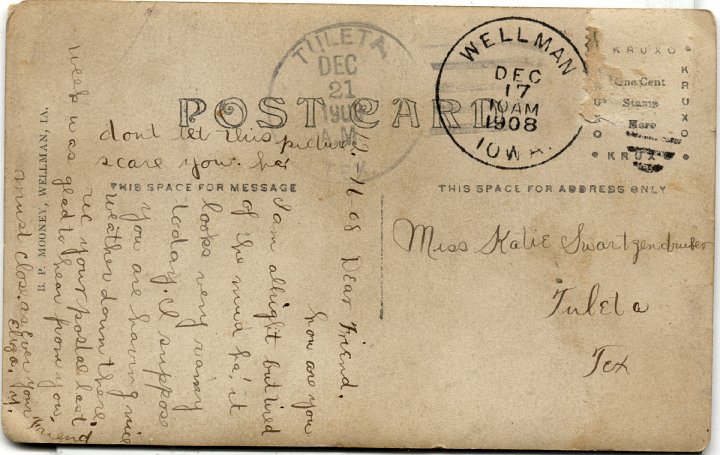 TULETA
DEC
21
190
A.M.
TEX
WELLMAN
DEC
17
10 AM
1908
IOWA.
KRUXO
KRUXO
KRUXO
KRUXO
One Cent
Stamp
Here
POST CARD
THIS SPACE FOR MESSAGE
THIS SPACE FOR ADDRESS ONLY
B. P. MOONEY, WELLMAN, IA.
dont let this picture
scare you. ha!
12-16 08 Dear Friend.
how are you
I am allright but tired
of the mud ha! it
looks very rainy
today. I suppose
you are having nice
weather down there.
rec your postal last
week was glad to hear from you,
must close. as Ever your Friend
Eliza. Y.
Miss Katie Swartzendruber
Tuleta
Tex